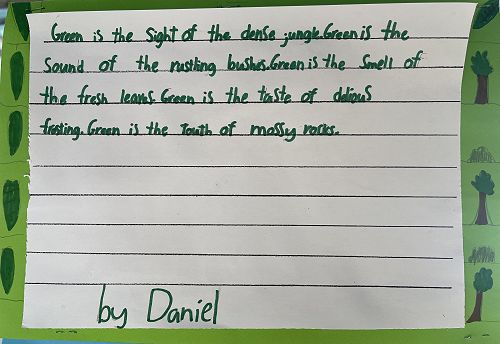 Green is the sight of the dense jungle.Green is the
sound of the rustling bushes.Green is the smell of
the fresh leaves.Green is the taste of delious
frosting.Green is the touth of mossy rocks.
by Daniel